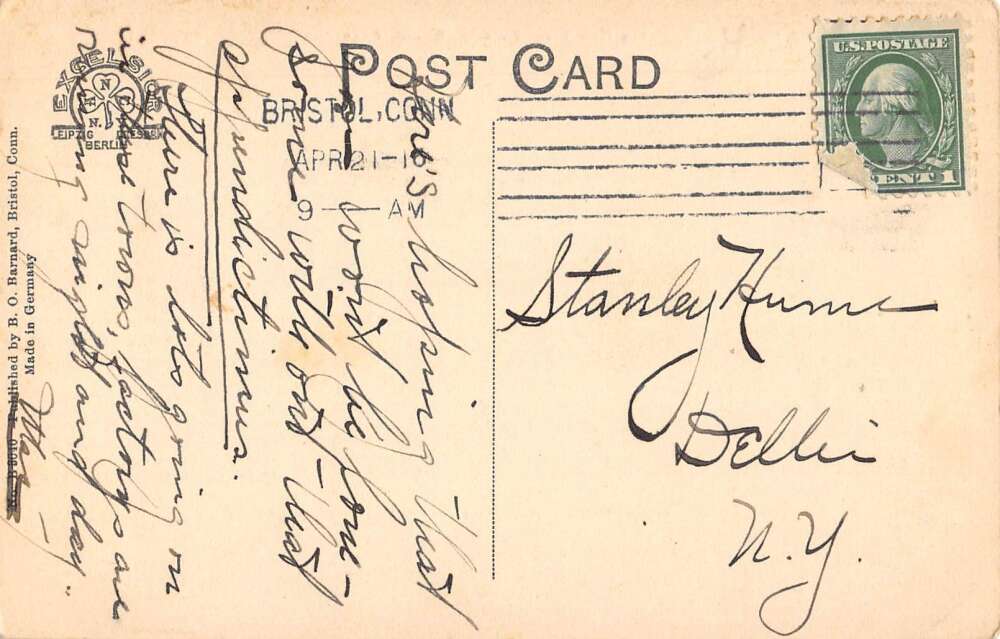 POST CARD
U.S.POSTAGE
CENT 1
BRISTOL, CONN
APR 21-1
9 — AM
Here's hoping that
you won't be lone-
some with out that
Appendictimus.
There is lots going on
in towns, factorys are
running night and day.
Stanley Hume
Delhi
N.Y.
EXCELSIOR
LEIPZIG DRESDEN
BERLIN
Published by B. O. Barnard, Bristol, Conn.
Made in Germany